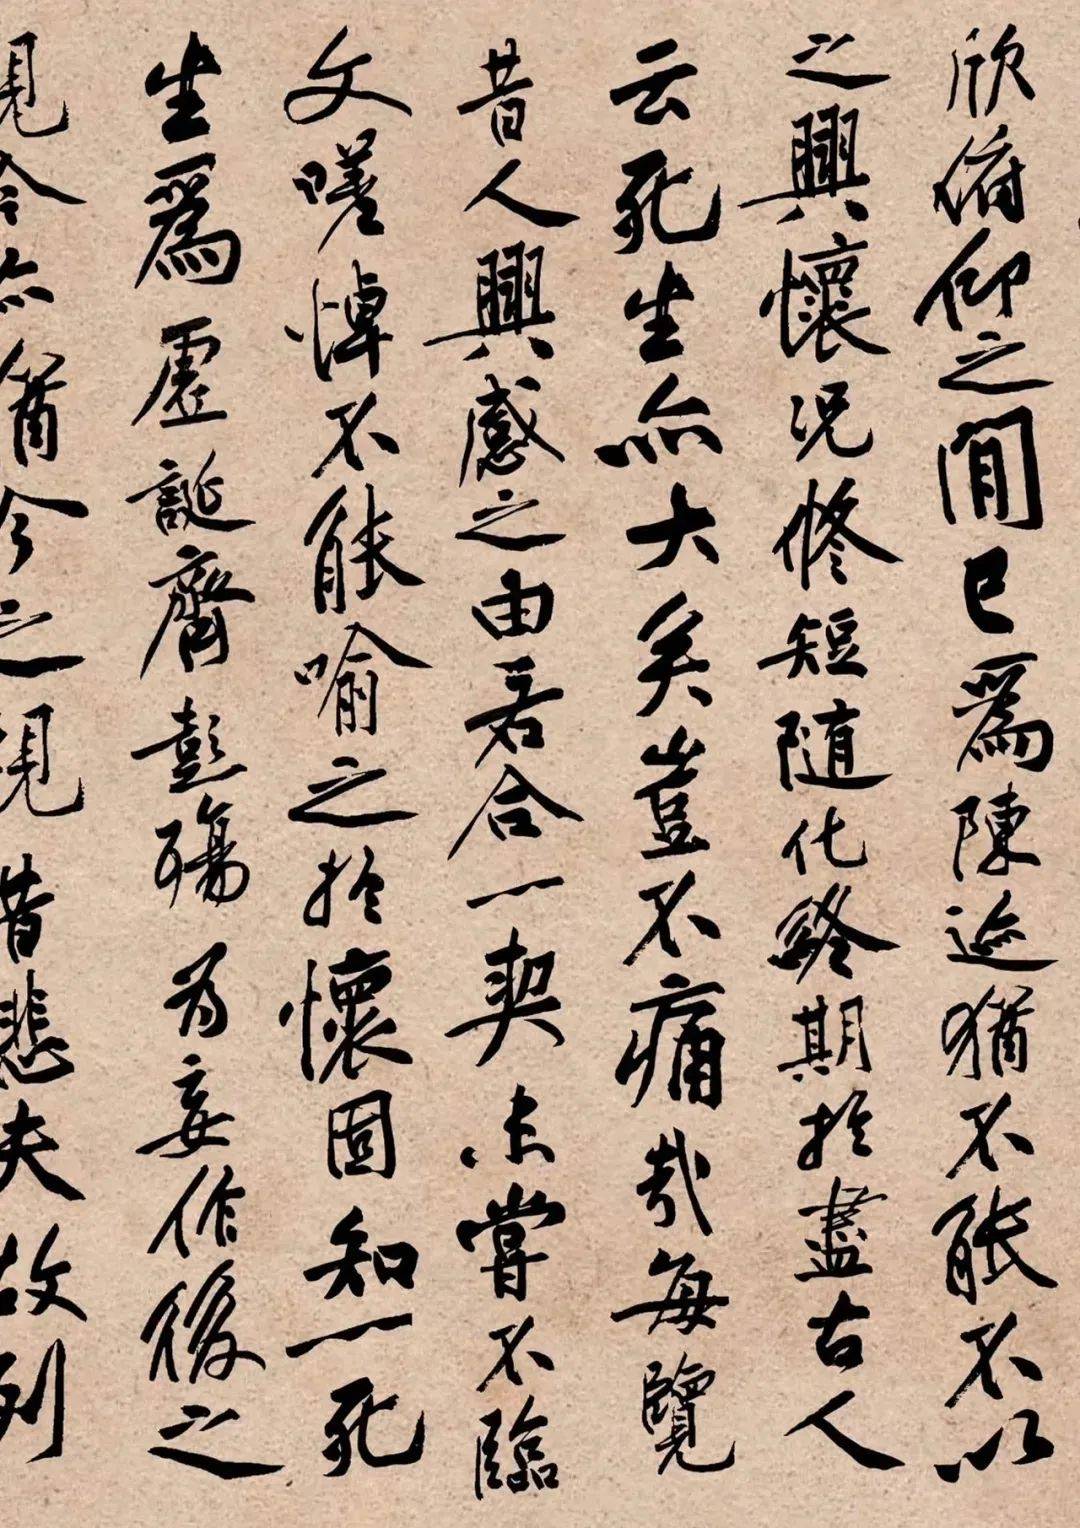 欣俯仰之閒已爲陳迹猶不能不以
之興懷况脩短随化終期於盡古人
云死生亦大矣豈不痛哉每覽
昔人興感之由若合一契未嘗不臨
文嗟悼不能喻之於懷固知一死
生爲虛誕齊彭殤爲妄作後之
視今亦猶今之視昔悲夫故列